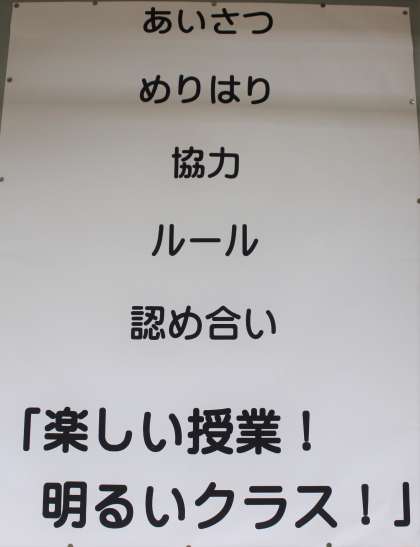 あいさつ
めりはり
協力
ルール
認め合い
「楽しい授業！
明るいクラス！」